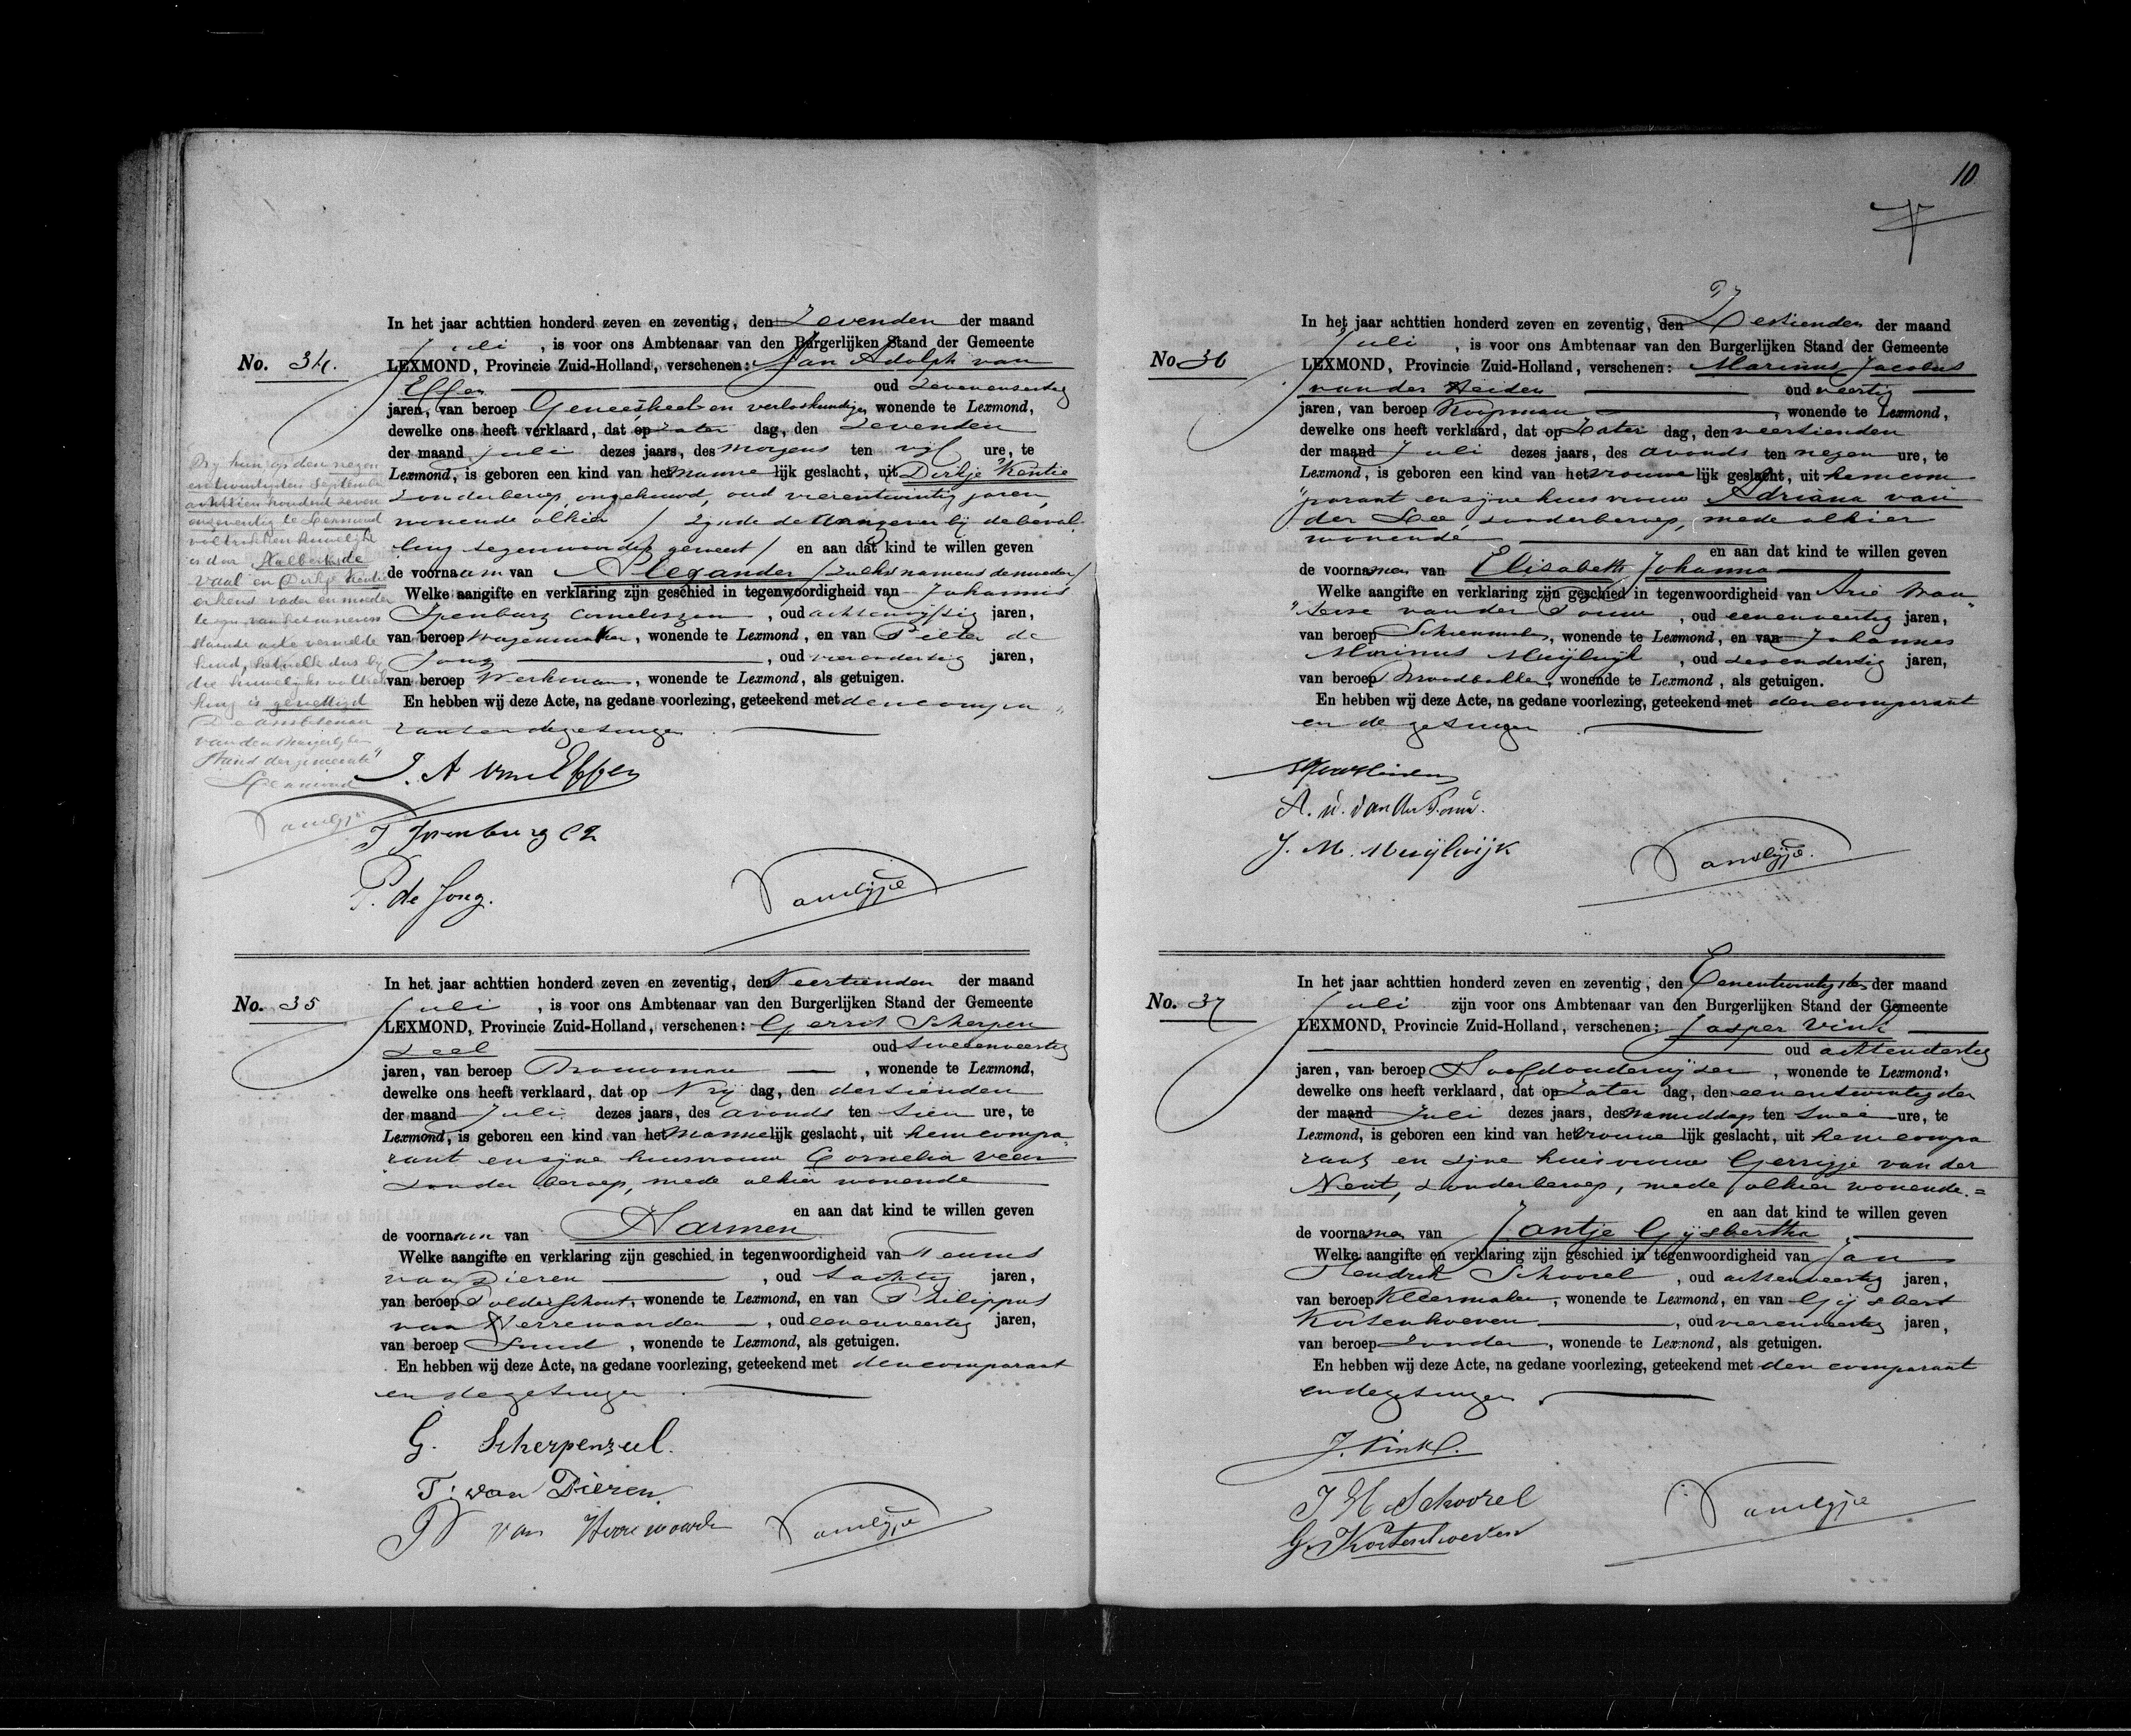 In het jaar achttien honderd zeven en zeventig, den Zevenden der maand
Juli, is voor ons Ambtenaar van den Burgerlijken Stand der Gemeente
No. 34.
LEXMOND, Provincie Zuid-Holland, verschenen: Jan Adolph van
Effen oud zevenensestig
jaren, van beroep Geneesheel en verloskundige, wonende te Lexmond,
dewelke ons heeft verklaard, dat op Zater dag, den Zevenden
der maand Juli dezes jaars, des morgens ten vijf ure, te
Lexmond, is geboren een kind van het manne lijk geslacht, uit Dirkje Kentie
zonder beroep, ongehuwd, oud vierentwintig jaren,
wonende alhier / zijnde de aangever bij de beval-
ling tegenwoordig geweest / en aan dat kind te willen geven
de voornaam van Alexander / zulks namens de moeder /
Welke aangifte en verklaring zijn geschied in tegenwoordigheid van Johannis
Ipenburg Corneliszen, oud achtenvijftig jaren,
van beroep Wagenmaker, wonende te Lexmond, en van Pieter de
Jong, oud vierendertig jaren,
van beroep Werkman, wonende te Lexmond, als getuigen.
En hebben wij deze Acte, na gedane voorlezing, geteekend met den compa-
rant en de getuigen.
Bij hun, op den negen
entwintigsten September
achttien honderd zeven
en zeventig te Lexmond
voltrokken huwelijk
is door de
Vaal en Dirkje Kentie
erkend vader en moeder
te zijn van het in nevens
staande acte vermelde
kind, hetwelk dus bij
die huwelijks voltrek
king is gewettigd
De Ambtenaar
van den Burgerlijken
Stand der gemeente
Lexmond
J. A. van Effen
J Ipenburg Cz
P. de Jong.
In het jaar achttien honderd zeven en zeventig, den Veertienden der maand
No. 35
Juli, is voor ons Ambtenaar van den Burgerlijken Stand der Gemeente
LEXMOND, Provincie Zuid-Holland, verschenen: Gerrit Scherpen
zeel oud tweeenveertig
jaren, van beroep Bouwman, wonende te Lexmond,
dewelke ons heeft verklaard, dat op Vrij dag, den dertienden
der maand Juli dezes jaars, des avonds ten tien ure, te
Lexmond, is geboren een kind van het mannelijk geslacht, uit hem compa-
rant en zijne huisvrouw Cornelia Veen
zonder beroep, mede alhier wonende
en aan dat kind te willen geven
de voornaam van Harmen
Welke aangifte en verklaring zijn geschied in tegenwoordigheid van Teunis
van Dieren, oud tachtig jaren,
van beroep Polderschout, wonende te Lexmond, en van Philippus
van Herrewaarden, oud eenenveertig jaren,
van beroep Smid, wonende te Lexmond, als getuigen.
En hebben wij deze Acte, na gedane voorlezing, geteekend met den comparant
en de getuigen.
G. Scherpenzeel.
T. van Dieren.
P van Herrewaarden
10
In het jaar achttien honderd zeven en zeventig, den Zestienden der maand
Juli, is voor ons Ambtenaar van den Burgerlijken Stand der Gemeente
No 36
LEXMOND, Provincie Zuid-Holland, verschenen: Marinus Jacobus
van der Heiden oud veertig
jaren, van beroep Koopman, wonende te Lexmond,
dewelke ons heeft verklaard, dat op Zater dag, den veertienden
der maand Juli dezes jaars, des avonds ten negen ure, te
Lexmond, is geboren een kind van het vrouwe lijk geslacht, uit hem com
parant en zijne huisvrouw Adriana van
der Lee, zonder beroep, mede alhier
wonende
en aan dat kind te willen geven
de voorname van Elisabeth Johanna
Welke aangifte en verklaring zijn geschied in tegenwoordigheid van Arie
van der, oud eenenveertig jaren,
van beroep, wonende te Lexmond, en van Johannes
Marinus Muijlwijk, oud zevendertig jaren,
van beroep Broodbakker, wonende te Lexmond, als getuigen.
En hebben wij deze Acte, na gedane voorlezing, geteekend met den comparant
en de getuigen
J. M. Muijlwijk
In het jaar achttien honderd zeven en zeventig, den Eenentwintigsten der maand
No. 37
Juli zijn voor ons Ambtenaar van den Burgerlijken Stand der Gemeente
LEXMOND, Provincie Zuid-Holland, verschenen: Jasper Vink
oud achtendertig
jaren, van beroep Hoofdonderwijser, wonende te Lexmond,
dewelke ons heeft verklaard, dat op Zater dag, den eenentwintigsten
der maand Juli dezes jaars, des namiddags ten twee ure, te
Lexmond, is geboren een kind van het vrouwe lijk geslacht, uit hem compa
rant en zijne huisvrouw Gerrigje van der
Neut, zonder beroep, mede alhier wonende.
en aan dat kind te willen geven
de voorname van Jantje Gijsbertha
Welke aangifte en verklaring zijn geschied in tegenwoordigheid van Jan
Hendrik Schoorel, oud achtenveertig jaren,
van beroep Kleermaker, wonende te Lexmond, en van Gijsbert
Kortenhoeven, oud vierenveertig jaren,
van beroep zonder, wonende te Lexmond, als getuigen.
En hebben wij deze Acte, na gedane voorlezing, geteekend met den comparant
en de getuigen.
J. Vink.
J H Schoorel
G. Kortenhoeven